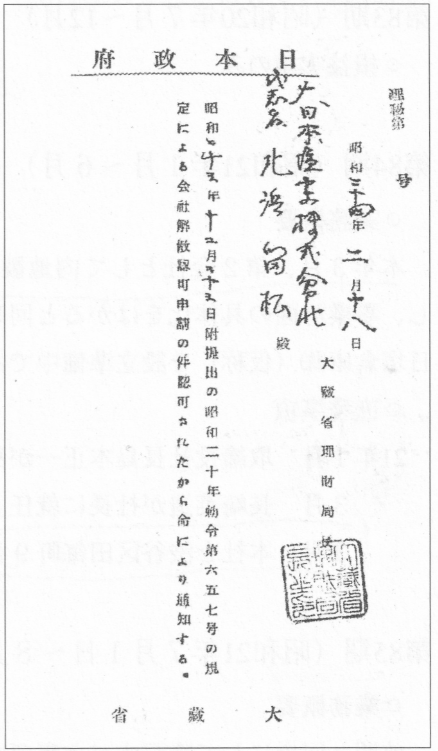 日本政府
理秘第　　号
昭和三十四年二月十八日
大日本産業株式会社
代表者 北浜留松 殿
大蔵省理財局長
昭和二十三年十二月二十三日附提出の昭和二十年勅令第六五七号の規
定による会社解散認可申請の件認可されたから命により通知する。
大蔵省